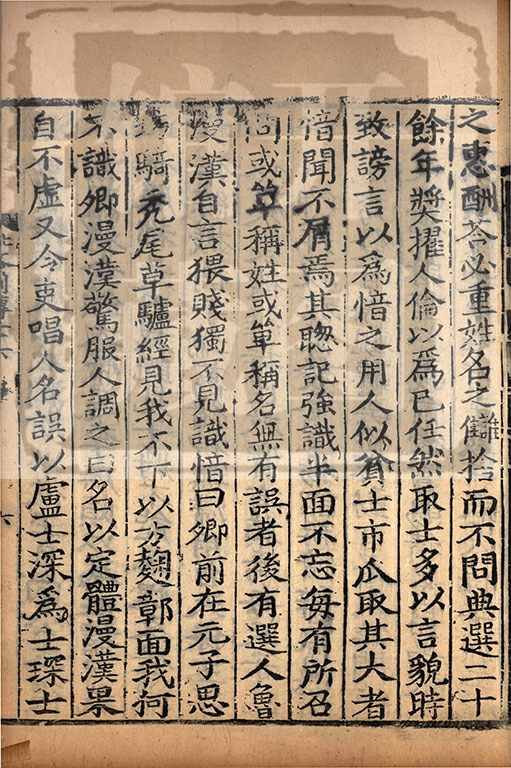 之惠酬荅必重姓名之讎拾而不問典選二十
餘年奬擢人倫以爲已任然取士多以言貌時
致謗言以爲愔之用人似貧士市瓜取其大者
愔聞不屑焉其聦記強識半面不忘每有所召
問或單稱姓或單稱名無有誤者後有選人魯
漫漢自言猥賤獨不見識愔曰卿前在元子思
坊騎禿尾草驢經見我不下以方麴鄣面我何
不識卿漫漢驚服人調之曰名以定體漫漢果
自不虛又令吏唱人名誤以盧士深爲士琛士